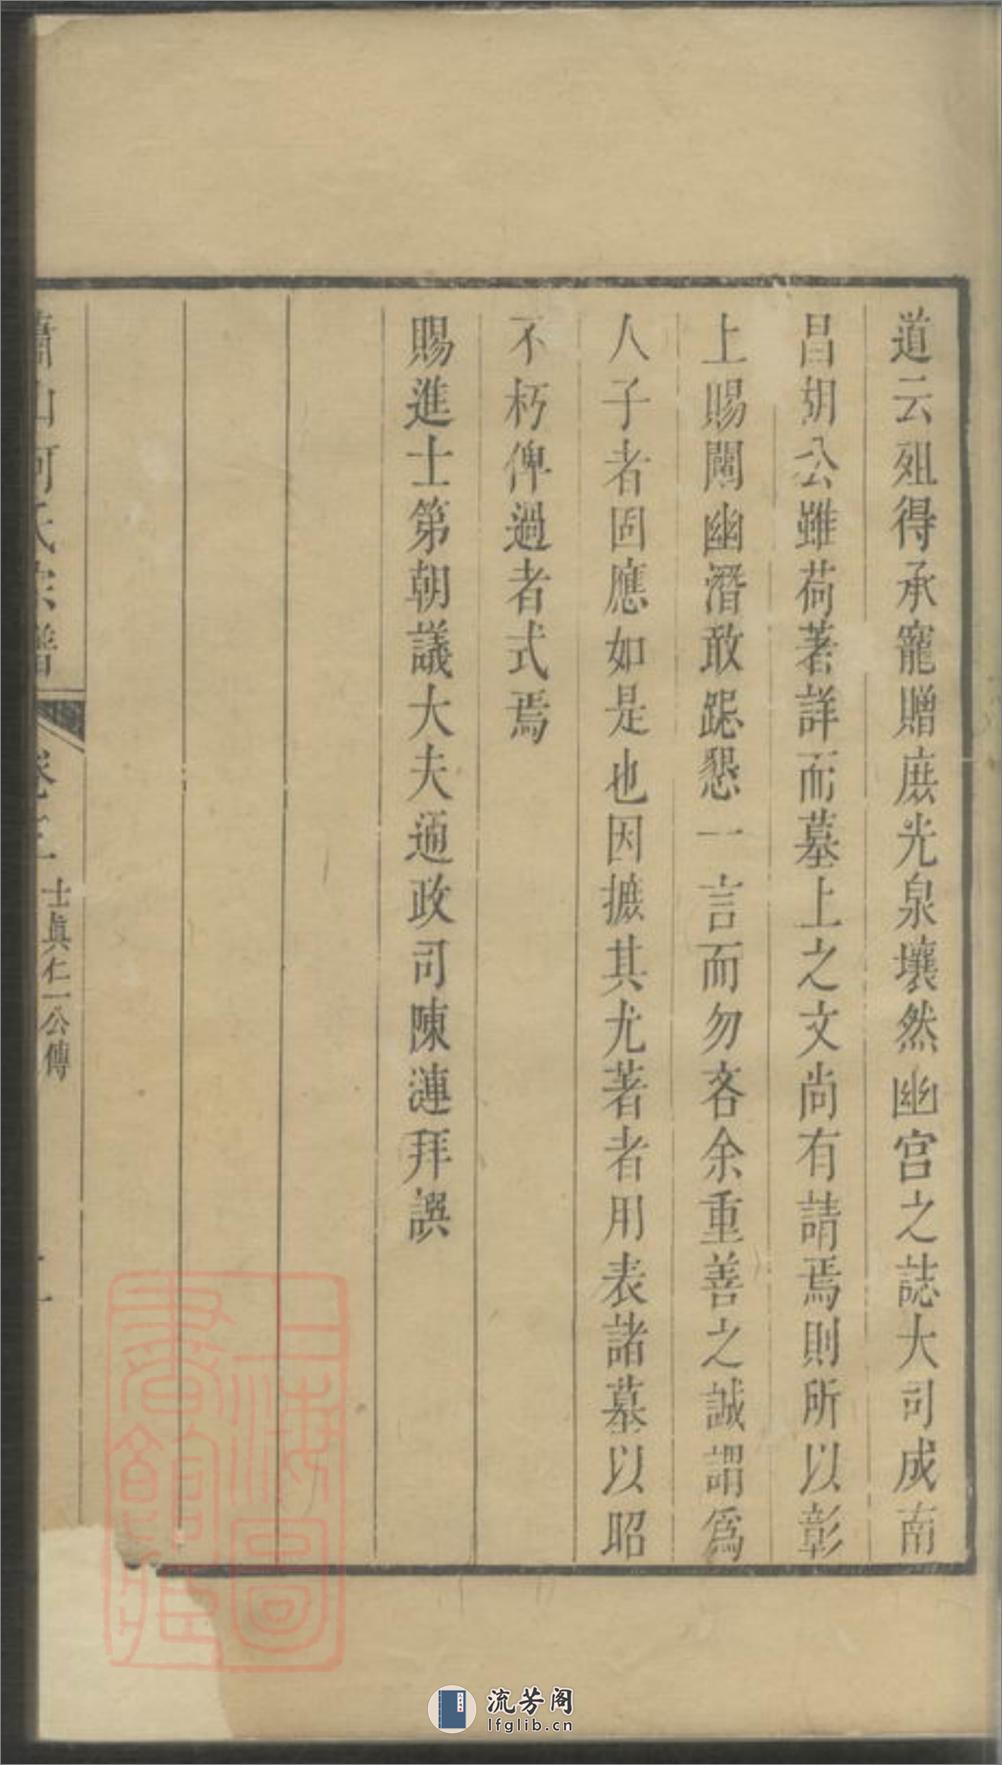 道云殂得承寵贈庶光泉壤然幽宮之誌大司成南
昌胡公雖荷著詳而墓上之文尚有請焉則所以彰
上賜闡幽潛敢跽懇一言而勿吝余重善之誠謂為
人子者固應如是也因摭其尤著者用表諸墓以昭
不朽俾過者式焉
賜進士第朝議大夫通政司陳漣拜譔
蕭山何氏宗譜
卷三
士真仁一公傳
上海圖書館藏
流芳阁
lfglib.cn